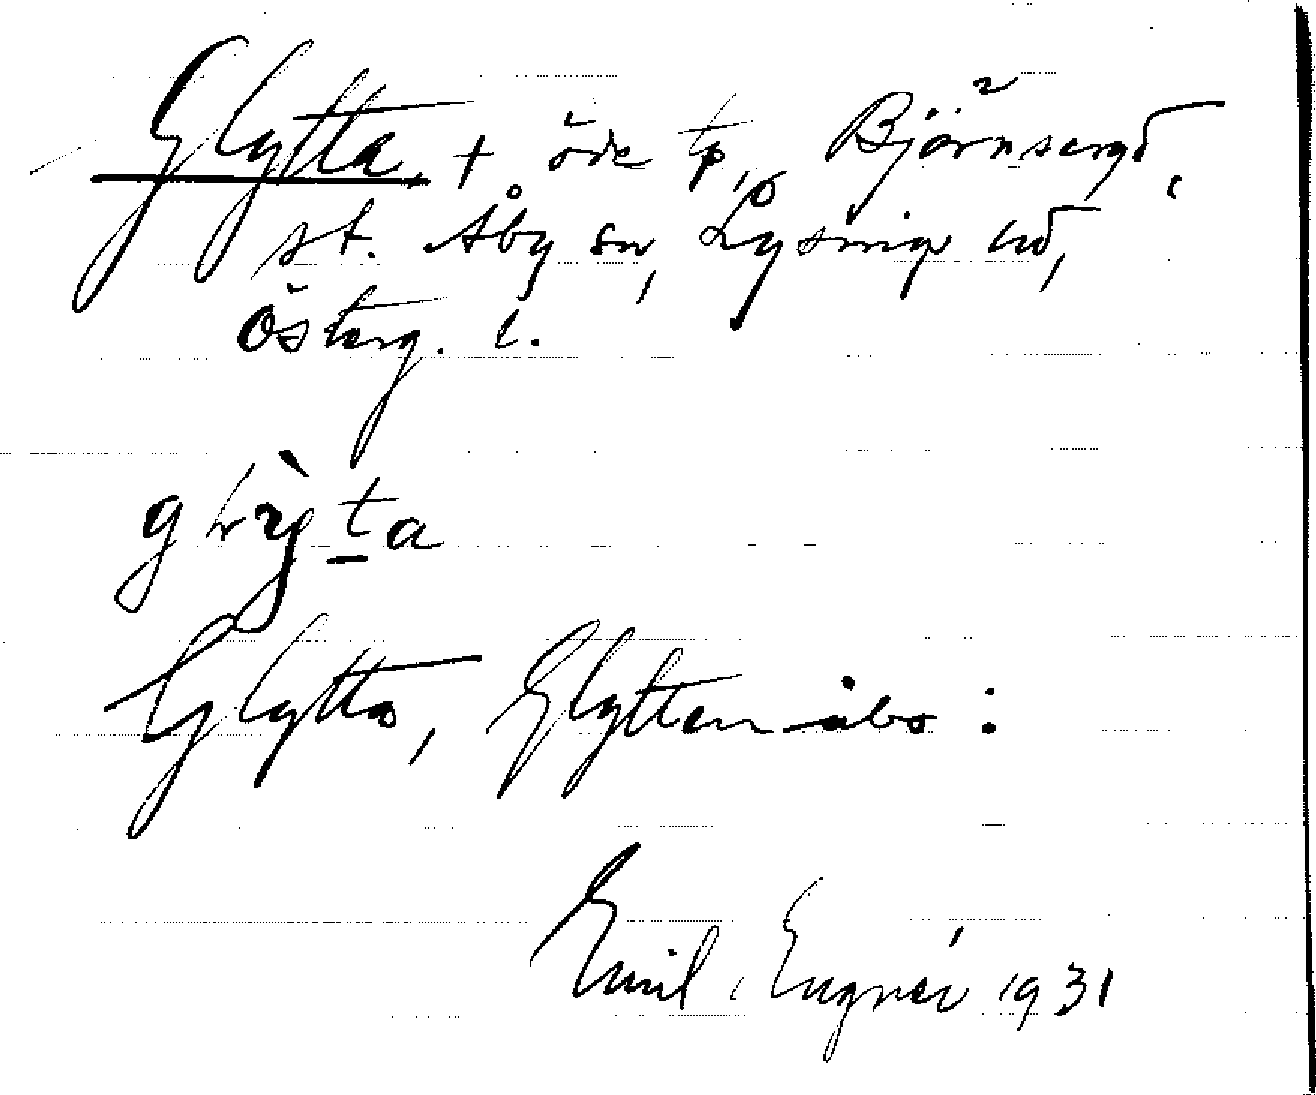 Glytta, + öde tp, Björnseryd,
st. Åby sn, Lysings hd,
Österg. l.
Glytta, Glytten åbo :
Emil Engnér 1931